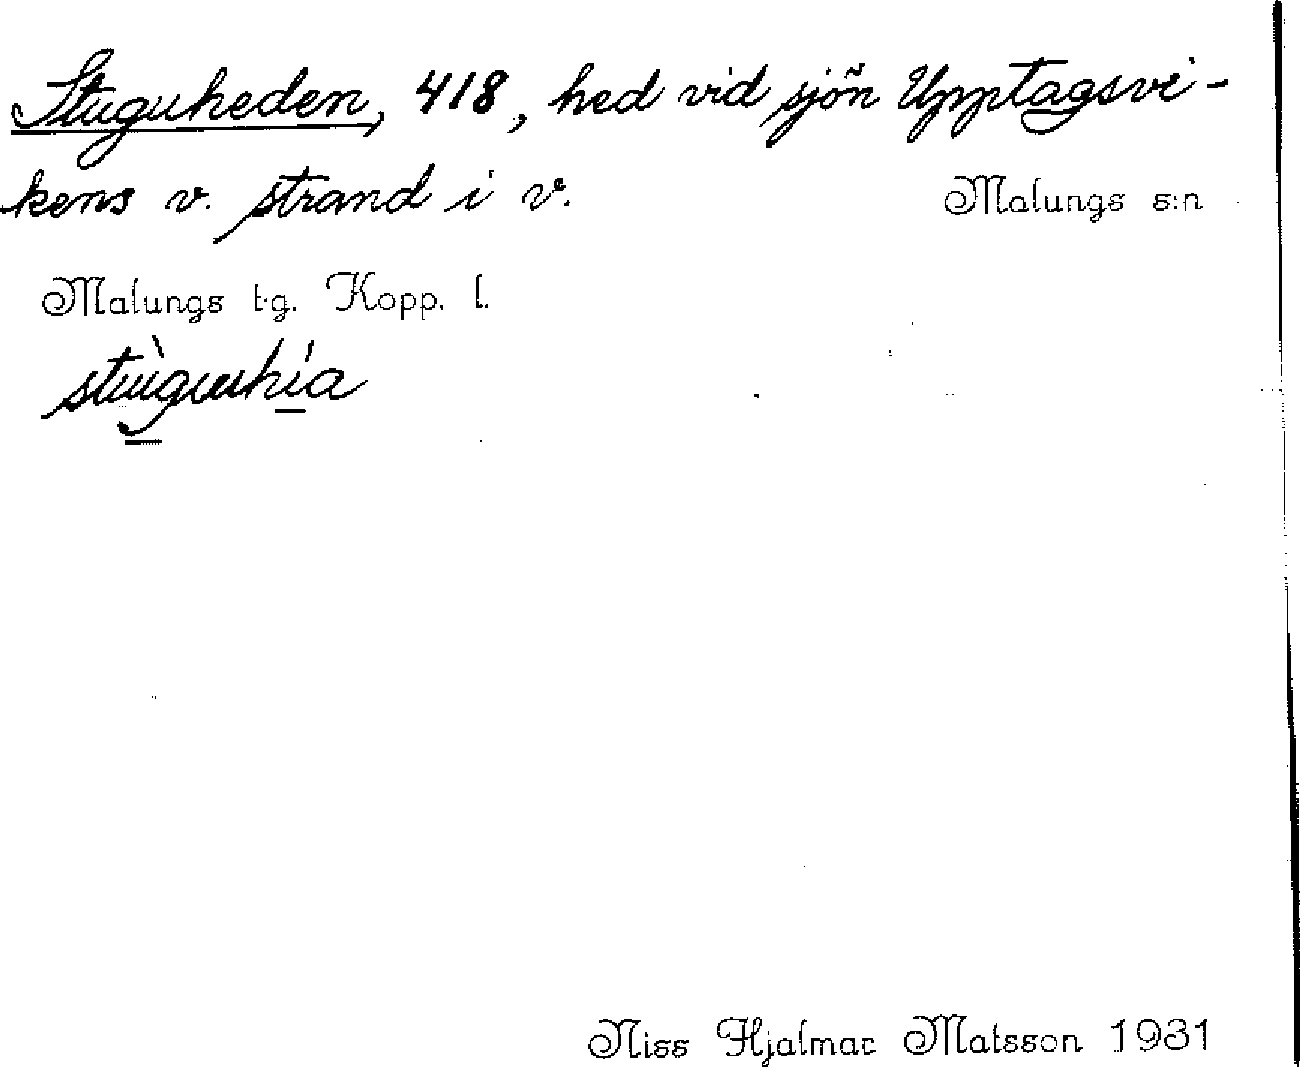 Stuguheden, 418, hed vid sjön Upptagsvi-
kens v. strand i v.
Malungs s:n
Malungs t.g. Kopp. l.
Niss Hjalmar Matsson 1931